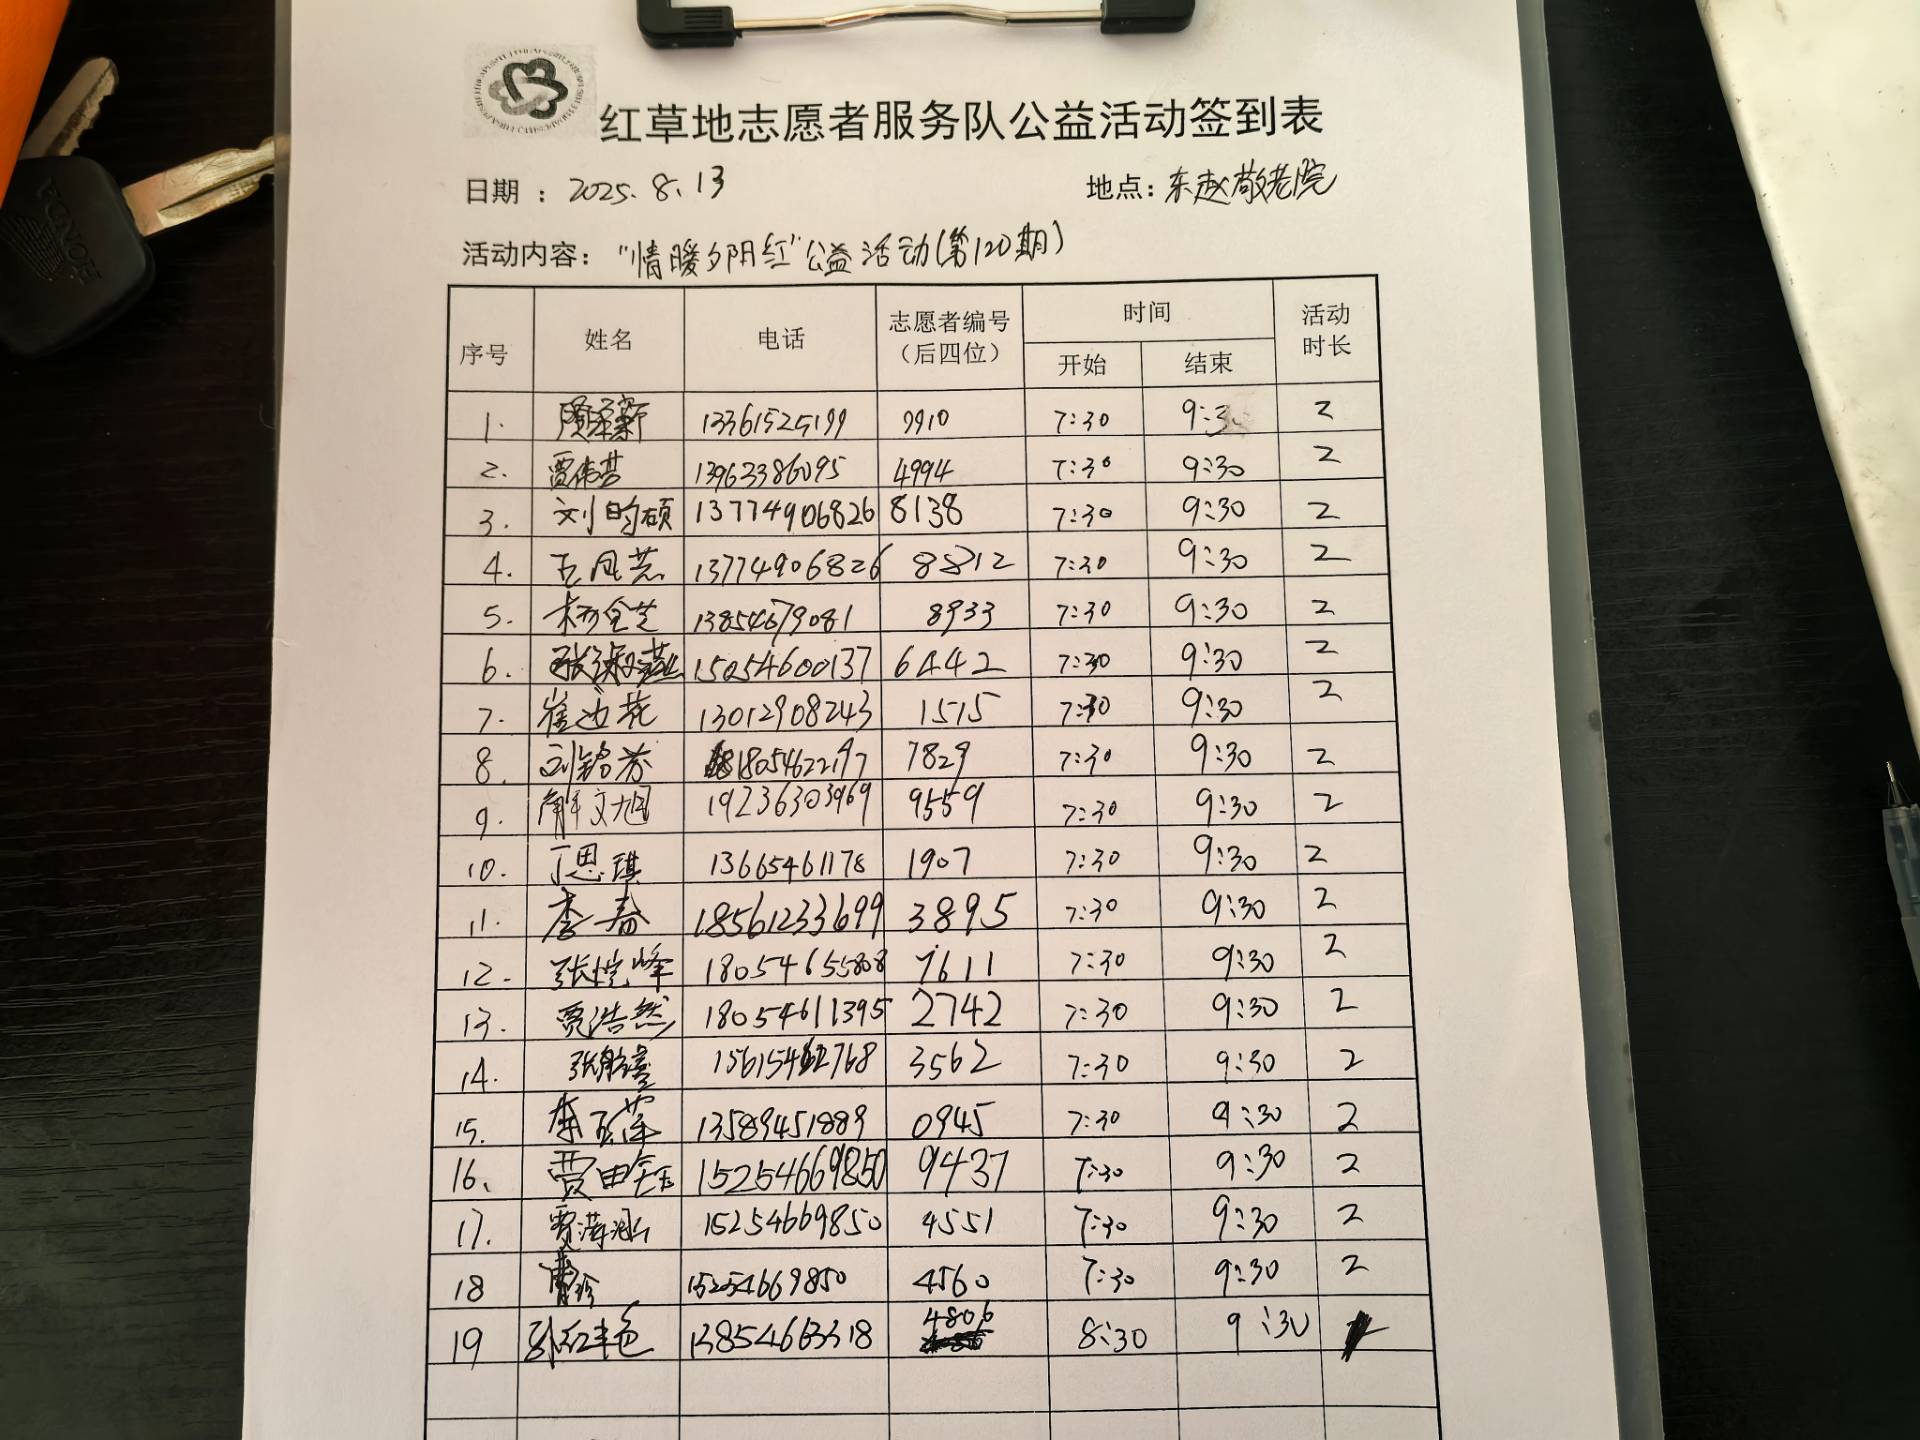 红草地志愿者服务队公益活动签到表
日期：2025.8.13 地点：东赵敬老院
活动内容：“情暖夕阳红”公益活动（第120期）
序号 姓名 电话 志愿者编号（后四位） 时间 开始 结束 活动时长
1. 13361525199 9910 7:30 9:3 2
2. 贾伟芸 13963386095 4994 7:30 9:30 2
3. 刘昀硕 13774906826 8138 7:30 9:30 2
4. 13774906826 8812 7:30 9:30 2
5. 杨全芝 13854679081 8933 7:30 9:30 2
6. 张淑燕 15054600137 6442 7:30 9:30 2
7. 崔边花 13012908243 1515 7:30 9:30 2
8. 刘铭芬 18054622197 7829 7:30 9:30 2
9. 解文旭 19236303969 9559 7:30 9:30 2
10. 丁思琪 13665461178 1907 7:30 9:30 2
11. 李春 18561233699 3895 7:30 9:30 2
12. 张恺峰 18054655808 7611 7:30 9:30 2
13. 贾浩然 18054611395 2742 7:30 9:30 2
14. 张航鑫 15615462768 3562 7:30 9:30 2
15. 李玉萍 13589451889 0945 7:30 9:30 2
16、 贾由钰 15254669850 9437 7:30 9:30 2
17. 贾涵 15254669850 4551 7:30 9:30 2
18 15254669850 4560 7:30 9:30 2
19 孙红色 13854663318 4806 8:30 9:30
HONDA